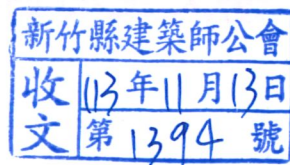 新竹縣建築師公會
收文
113年11月13日
第1394號